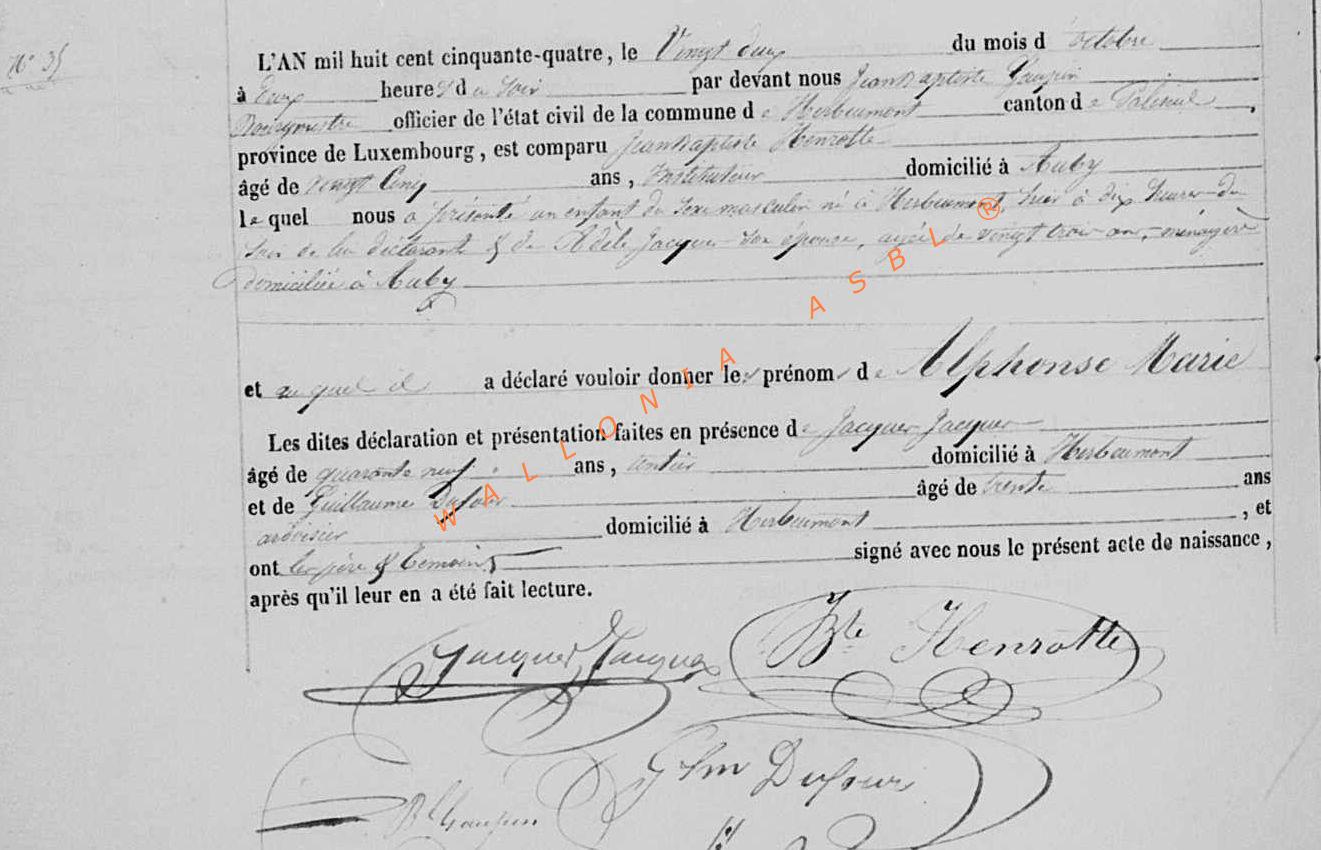 N° 35
L'AN mil huit cent cinquante-quatre, le Vingt deux du mois d'octobre
à Deux heures du soir par devant nous Jean Baptiste
Bourgmestre officier de l'état civil de la commune de Herbeumont canton de Paliseul,
province de Luxembourg, est comparu Jean Baptiste Henrotte
âgé de vingt Cinq ans, Instituteur domicilié à Auby
lequel nous a présenté un enfant du sexe masculin né à Herbeumont, hier à dix heures du
soir de lui déclarant & de Adèle Jacques son épouse, agée de vingt trois ans, ménagère
domiciliée à Auby
et auquel il a déclaré vouloir donner les prénoms de Alphonse Marie
Les dites déclaration et présentation faites en présence de Jacques Jacques
âgé de quarante neuf ans, domicilié à Herbeumont
et de Guillaume Dufour âgé de trente ans
ardoisier domicilié à Herbeumont, et
ont les père & témoins signé avec nous le présent acte de naissance,
après qu'il leur en a été fait lecture.
Jacques Jacques
Bte Henrotte
Glm Dufour
WALLONIA ASBL ®